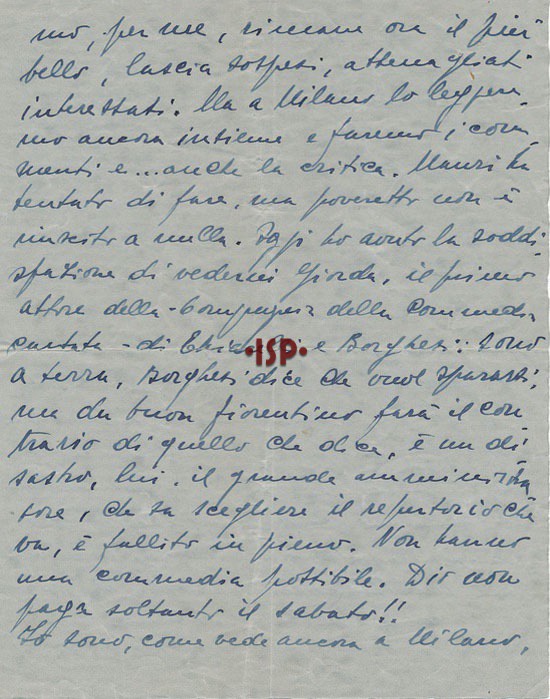 mo, per me, rimane ora il più
bello, lascia sospesi, attenagliati
interessati. Ma a Milano lo leggere
mo ancora insieme e faremo i com
menti e... anche la critica. Mauri ha
tentato di fare, ma poveretto non è
riuscito a nulla. Oggi ho avuto la soddi
sfazione di vedermi Giorda, il primo
attore della Compagnia della Commedia
cantata - di e Borghesi: sono
a terra, Borghesi dice che vuol spararsi,
ma da buon fiorentino farà il con
trario di quello che dice, è un di
sastro, lui, il grande amministra
tore, che sa scegliere il repertorio che
va, è fallito in pieno. Non hanno
una commedia possibile. Dio non
paga soltanto il sabato!!
Io sono, come vede ancora a Milano,
•ISP•